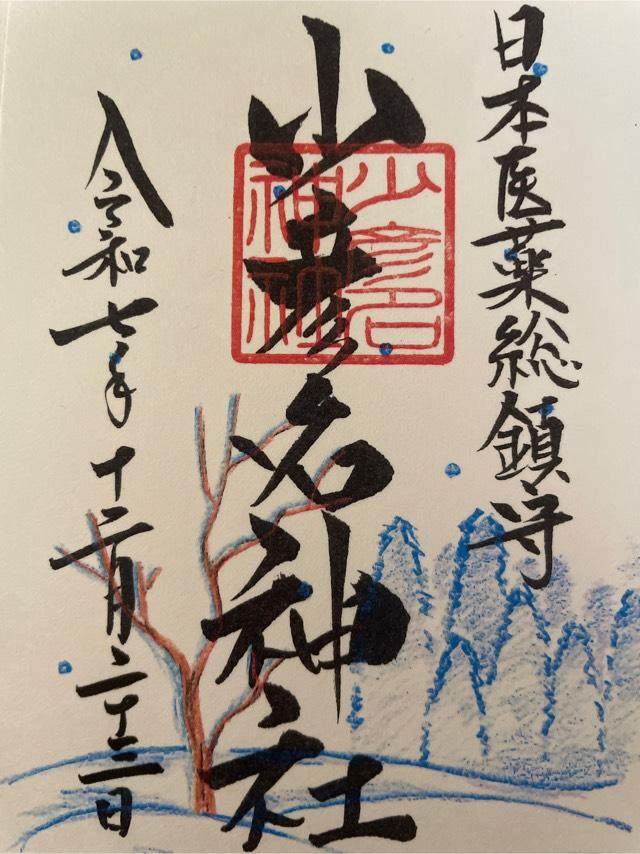 日本医薬総鎮守
少彦名神社
少彦名
神社
令和七年十二月二十三日